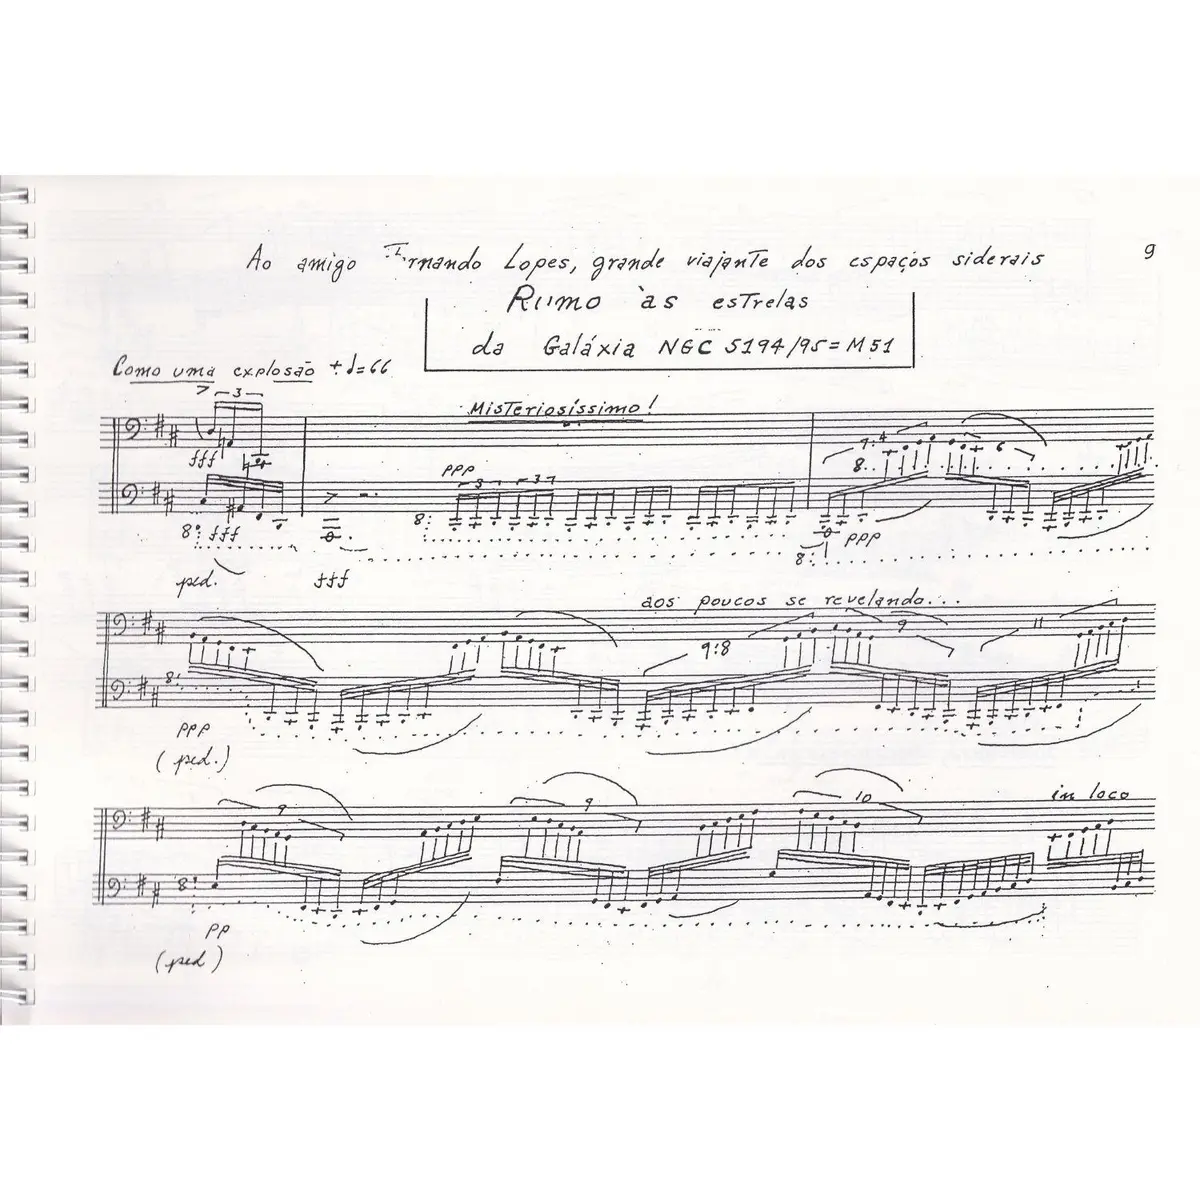 9
Ao amigo Fernando Lopes, grande viajante dos espaços siderais
Rumo às estrelas
da Galáxia NGC 5194/95=M51
Como uma explosão + ♩=66
3
Misteriosíssimo!
fff
ppp
3 3
7:4 6
8
8 fff
8
ppp
8
ped.
fff
aos poucos se revelando...
9:8 9 11
8
ppp
(ped.)
in loco
9 9 10
8
pp
(ped)